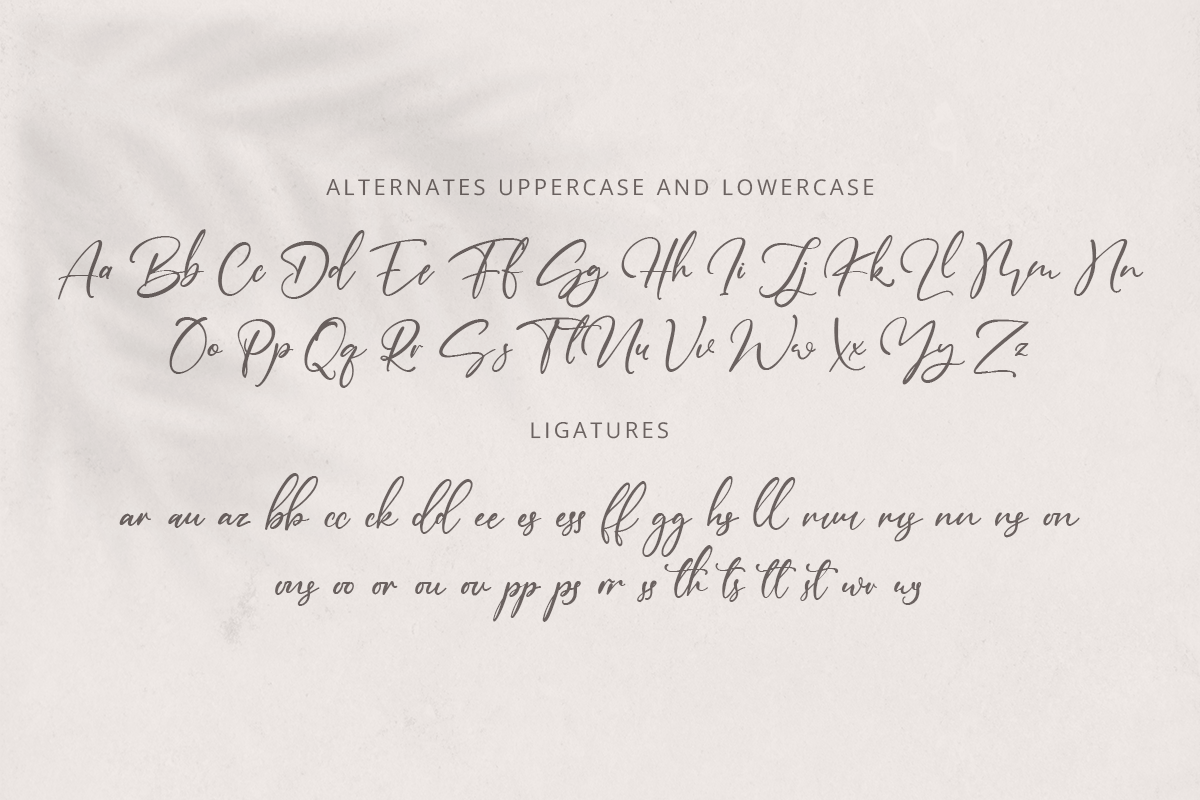 ALTERNATES UPPERCASE AND LOWERCASE
Aa Bb Cc Dd Ee Ff Gg Hh Ii Jj Kk Ll Mm Nn
Oo Pp Qq Rr Ss Tt Uu Vv Ww Xx Yy Zz
LIGATURES
ar au az bb cc ck dd ee es ess ff gg hs ll mm ms nn ns on
ons oo or ou ov pp ps rr ss th ts tt st ur us